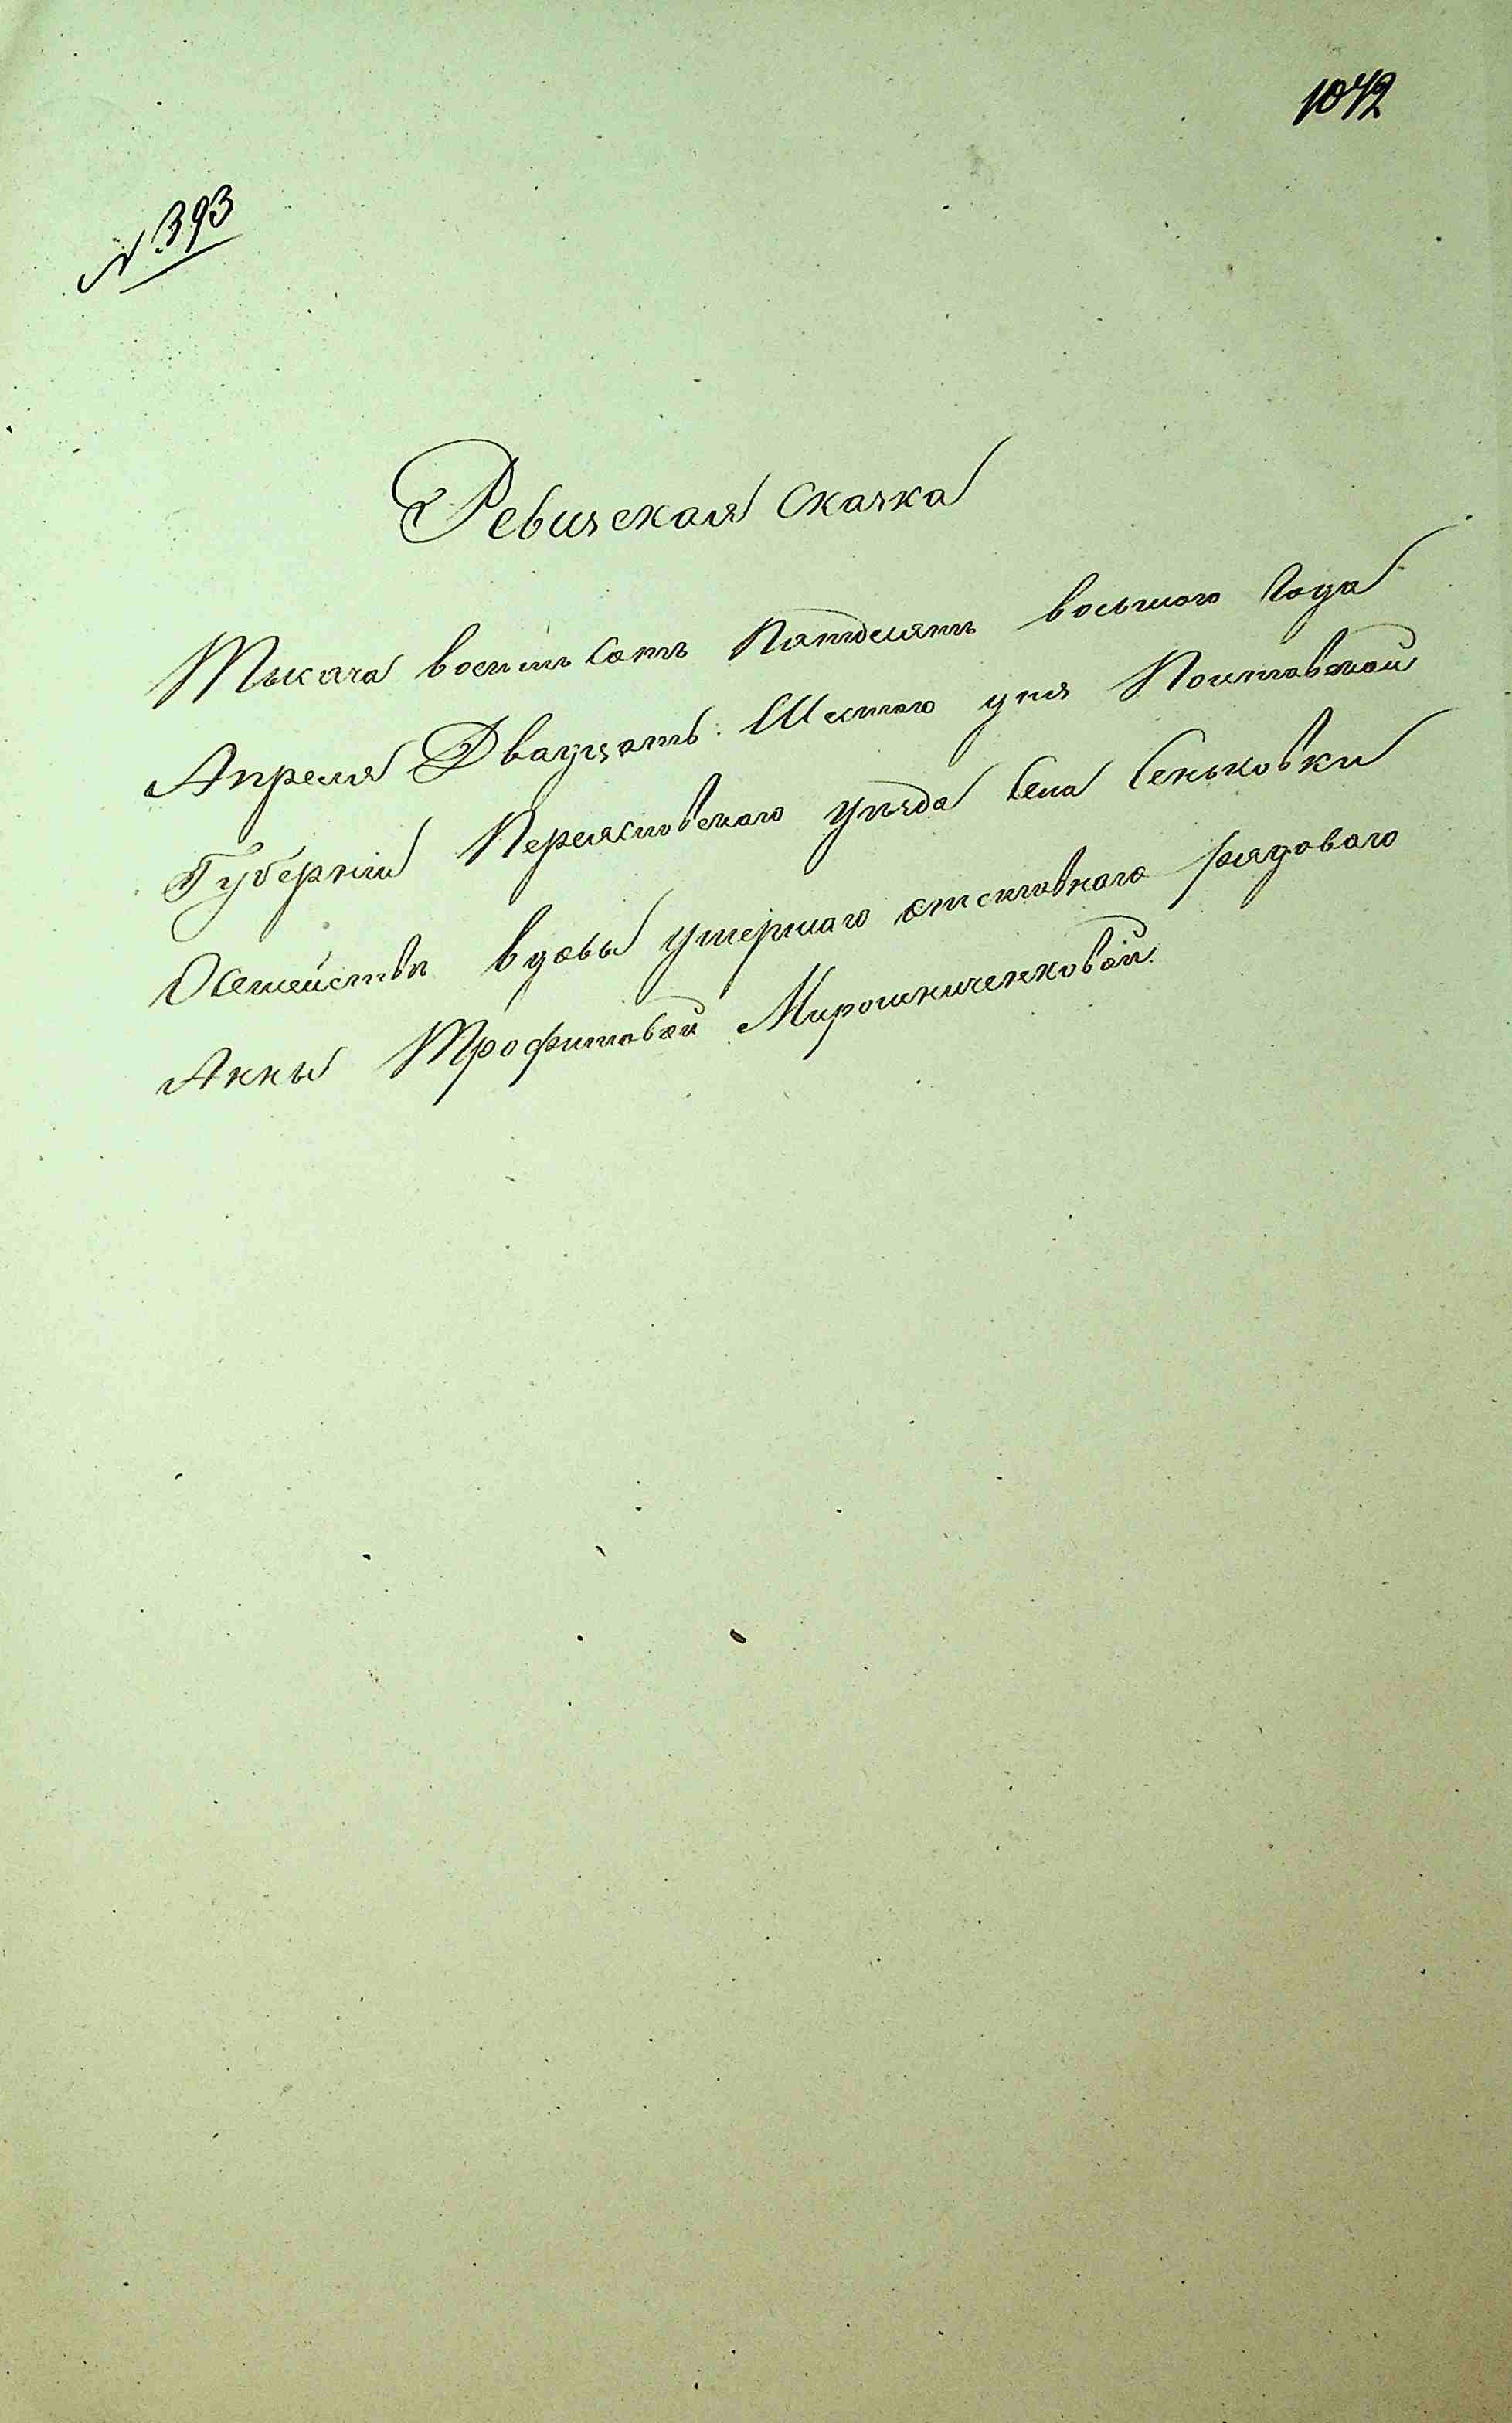 1042
№ 393
Ревизская сказка
Тысяча восемь сотъ Пятдесятъ восьмого Года
Апреля Двадцать Шестого дня Полтавской
Губерніи Переясловского уѣзда Села Сеньковки
О Семействѣ вдовы умершаго отставного рядоваго
Анны Трофимовой Мирошниченковой.